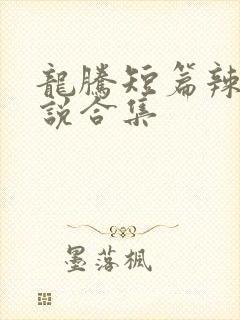 龍騰短篇辣
說合集
墨落楓